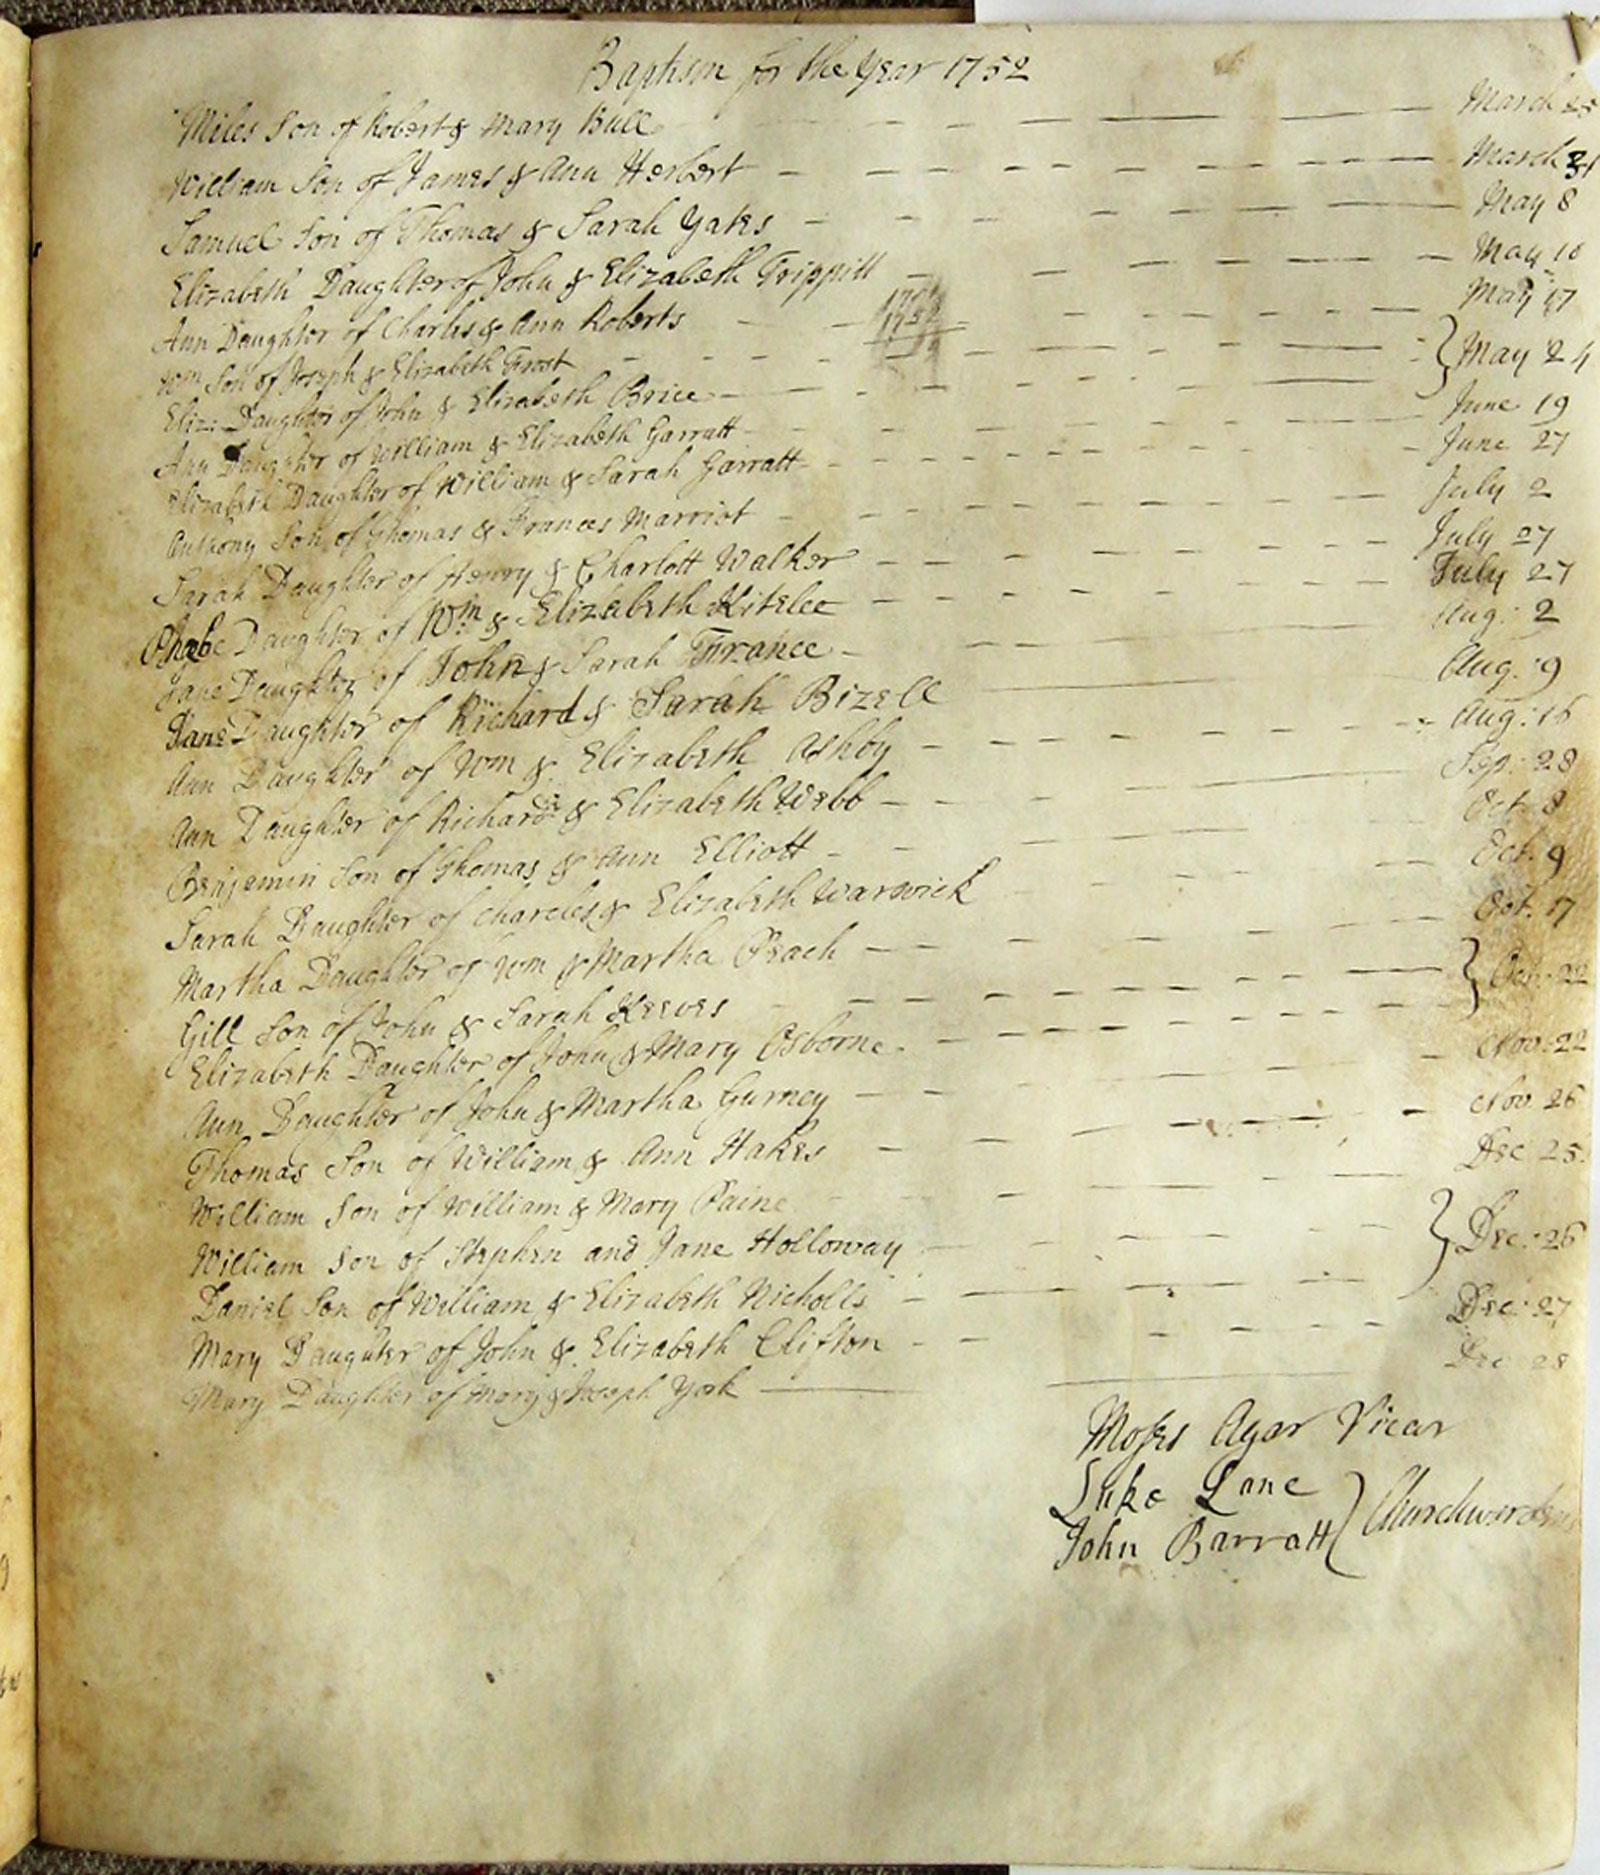 Baptism for the Year 1752
Miles Son of Robert & Mary Bull March 25
William Son of James & Ann Herbert March 31
Samuel Son of Thomas & Sarah Yates May 8
Elizabeth Daughter of John & Elizabeth Trippitt May 10
Ann Daughter of Charles & Ann Roberts May 17
Wm Son of Joseph & Elizabeth Frost } May 24
Eliz: Daughter of John & Elizabeth Brice
Ann Daughter of William & Elizabeth Garratt June 19
Elizabeth Daughter of William & Sarah Garratt June 27
Anthony Son of Thomas & Frances Marriot July 2
Sarah Daughter of Henry & Charlott Walker July 27
Phebe Daughter of Wm & Elizabeth Kitelee July 27
Jane Daughter of John & Sarah France Aug: 2
Jane Daughter of Richard & Sarah Bizell Aug: 9
Ann Daughter of Wm & Elizabeth Ashby Aug: 16
Ann Daughter of Richard & Elizabeth Webb Sep: 28
Benjamin Son of Thomas & Ann Elliott Oct: 8
Sarah Daughter of Charles & Elizabeth Warwick Oct. 9
Martha Daughter of Wm & Martha Peach Oct. 17
Gill Son of John & Sarah Keeves } Oct: 22
Elizabeth Daughter of John & Mary Osborne
Ann Daughter of John & Martha Gurney Nov: 22
Thomas Son of William & Ann Hakes Nov. 26
William Son of William & Mary Paine Dec 25
William Son of Stephen and Jane Holloway } Dec: 26
Daniel Son of William & Elizabeth Nicholls
Mary Daughter of John & Elizabeth Clifton Dec: 27
Mary Daughter of Mary & Joseph York Dec 28
Moses Agar Vicar
Luke Lane
John Barratt } Churchwardens